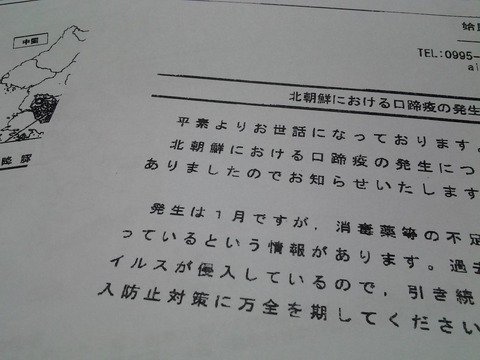 中国
TEL:0995-
北朝鮮における口蹄疫の発生
平素よりお世話になっております。
北朝鮮における口蹄疫の発生につ
ありましたのでお知らせいたします
発生は1月ですが，消毒薬等の不足
っているという情報があります。過去
イルスが侵入しているので，引き続
入防止対策に万全を期してください